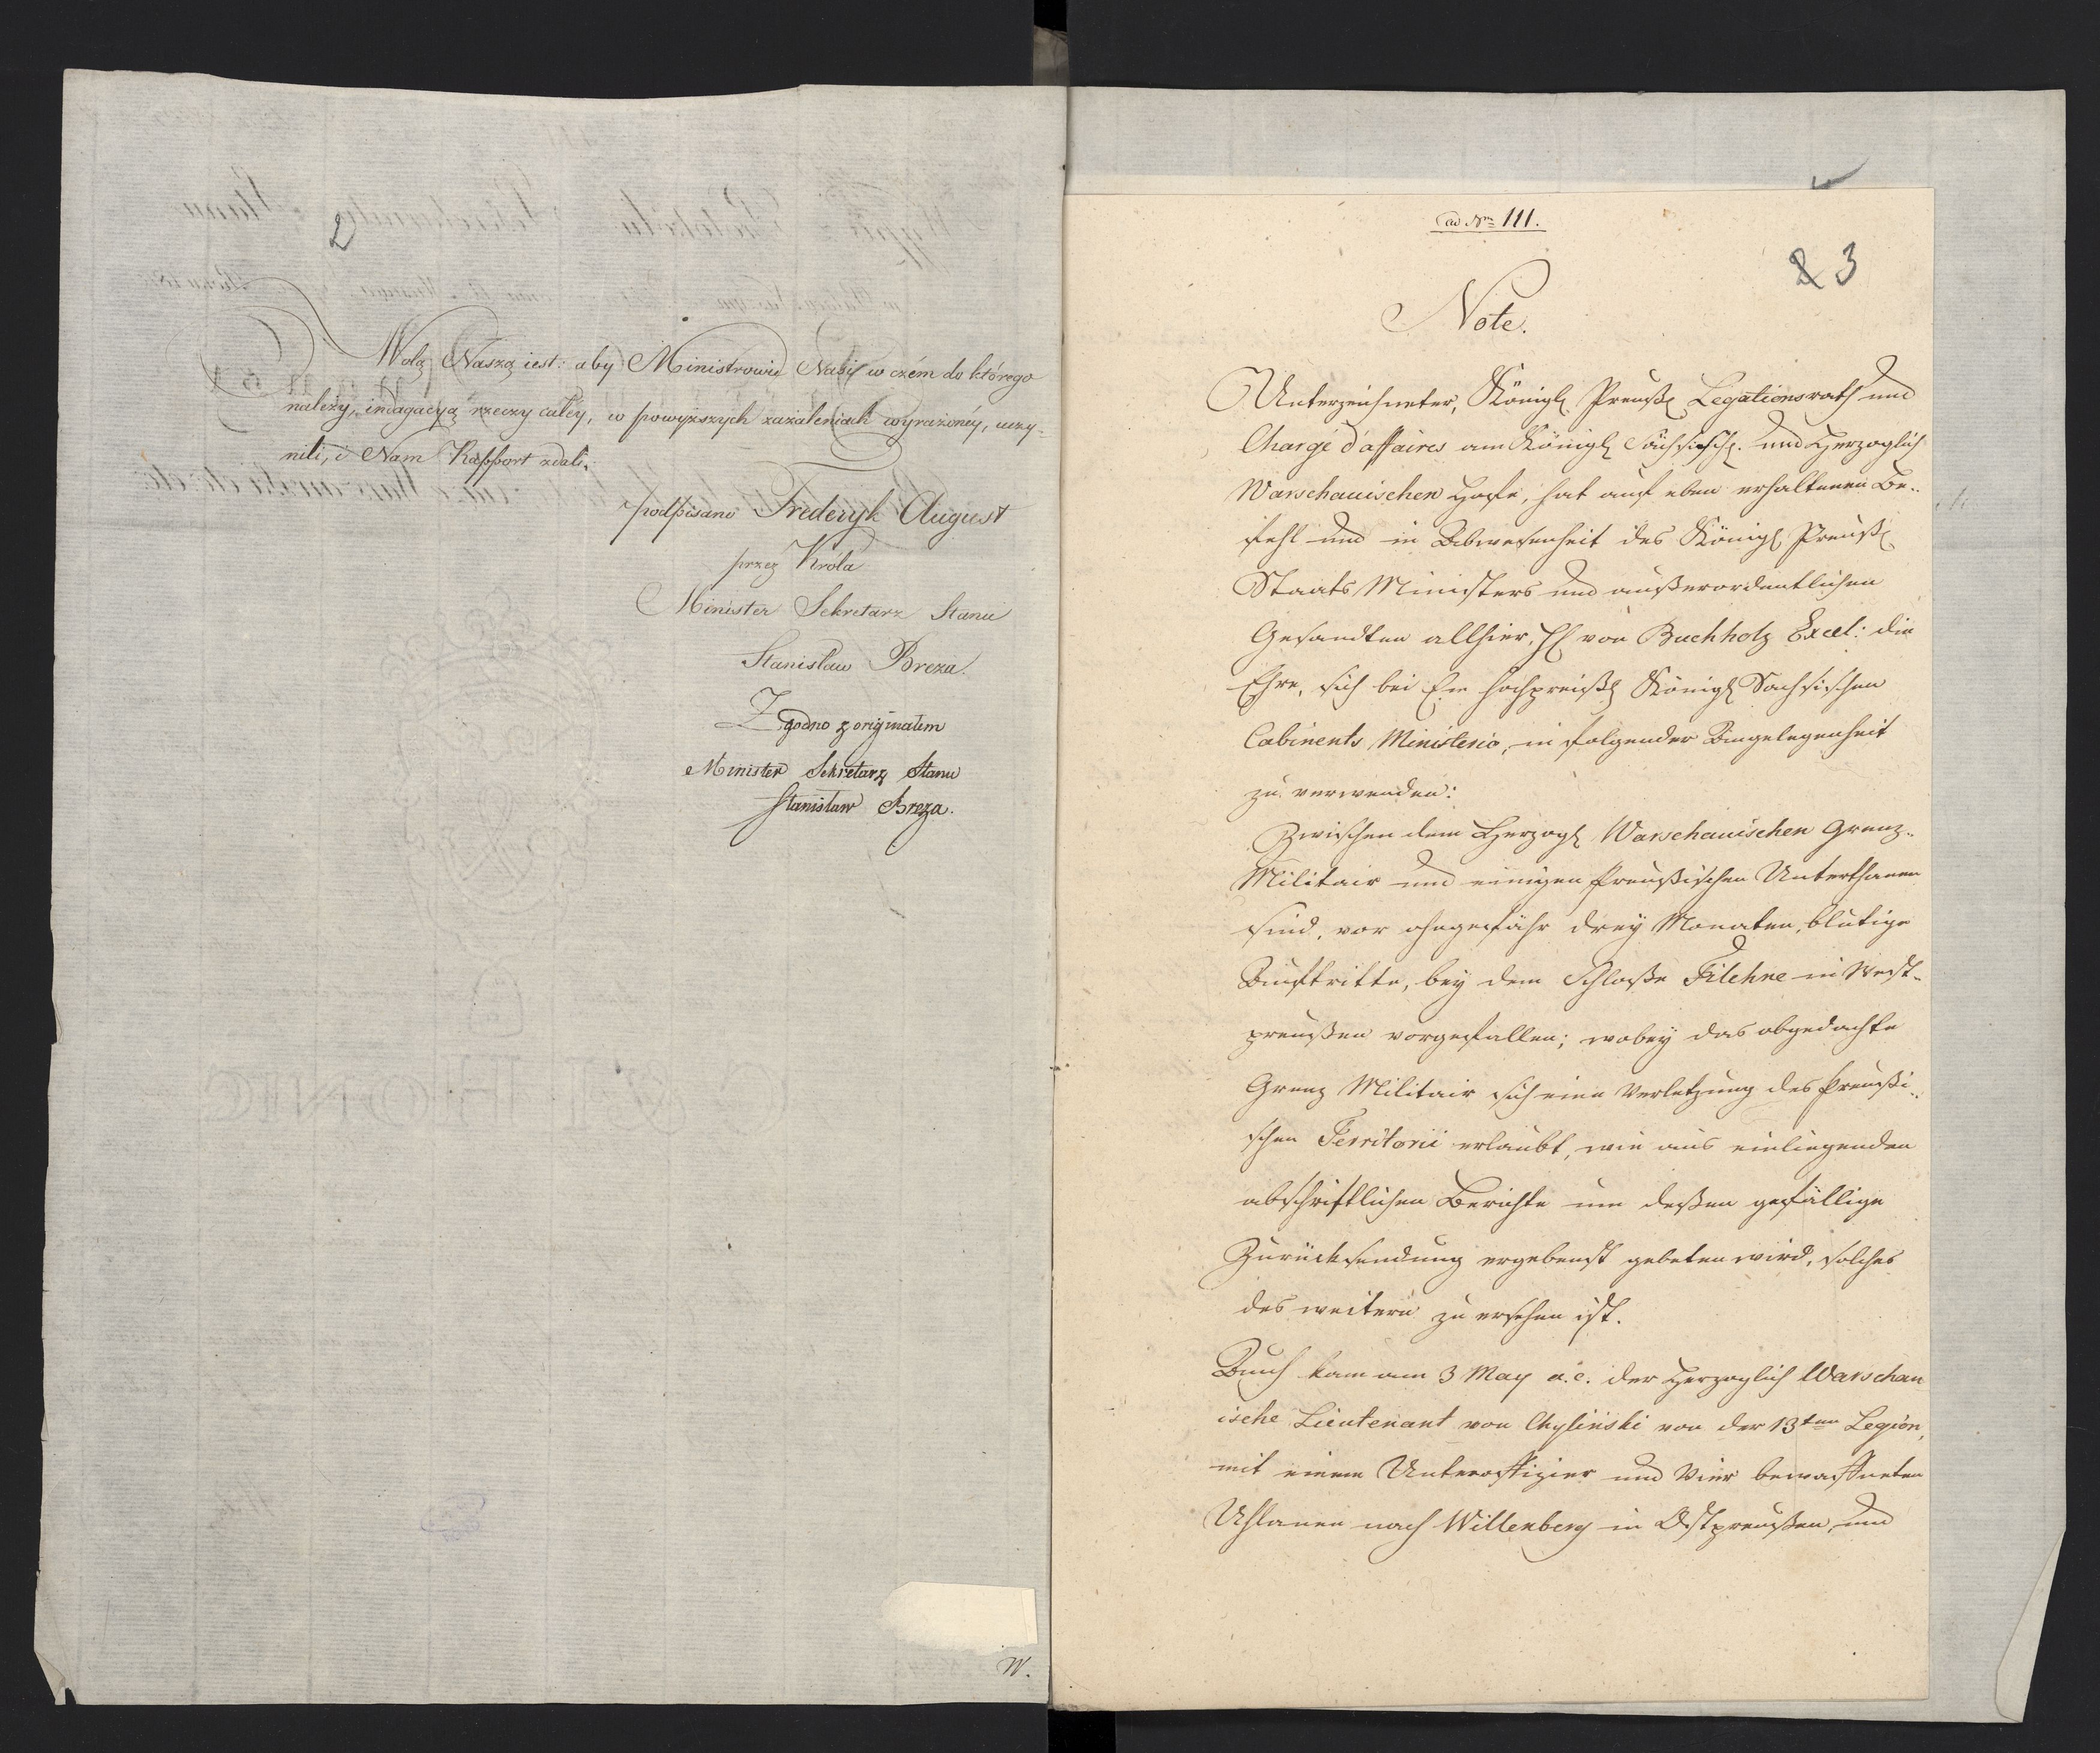 2
Wolą Naszą iest: aby Ministrowie Nasi w czém do którego
należy, indagacyą rzeczy całéy, w powyższych zażaleniach wyrażonéy, uczy-
nili, i Nam Rapport zdali.
podpisano Frederyk August
przez Króla
Minister Sekretarz Stanu
Stanisław Breza.
Zgodno z originałem
Minister Sekretarz Stanu
Stanisław Breza.
W.
ad Nm 111.
2 3
Note.
Unterzeichneter, Königl. Preuß. Legationsrath und
Chargé d'affaires am Königl. Sächsisch. und Herzoglich
Warschauischen Hofe, hat auf eben erhaltenen Be-
fehl und in Abwesenheit des Königl. Preuß.
Staats Ministers und außerordentlichen
Gesandten allhier, H. von Buchholz Excel: die
Ehre, sich bei Em hochpreißl. Königl. Sachsischen
Cabinents Ministerio, in folgender Angelegenheit
zu verwenden:
Zwischen dem Herzogl. Warschauischen Grenz-
Militair und einigen Preußischen Unterthanen
sind, vor ohngefähr drey Monaten, blutige
Auftritte, bey dem Schloße Filehne in West-
preußen vorgefallen; wobey das obgedachte
Grenz Militair sich eine Verletzung des Preußi-
schen Territorii erlaubt, wie aus einliegenden
abschriftlichen Berichte um deßen gefällige
Zurücksendung ergebenst gebeten wird, solches
des weitern zu ersehen ist.
Auch kam am 3 May a. c. der Herzoglich Warschau
ische Lieutenant von Chyliński von der 13ten Legion,
mit einem Unteroffizier und Vier bewaffneten
Uhlanen nach Willenberg in Ostpreußen, und